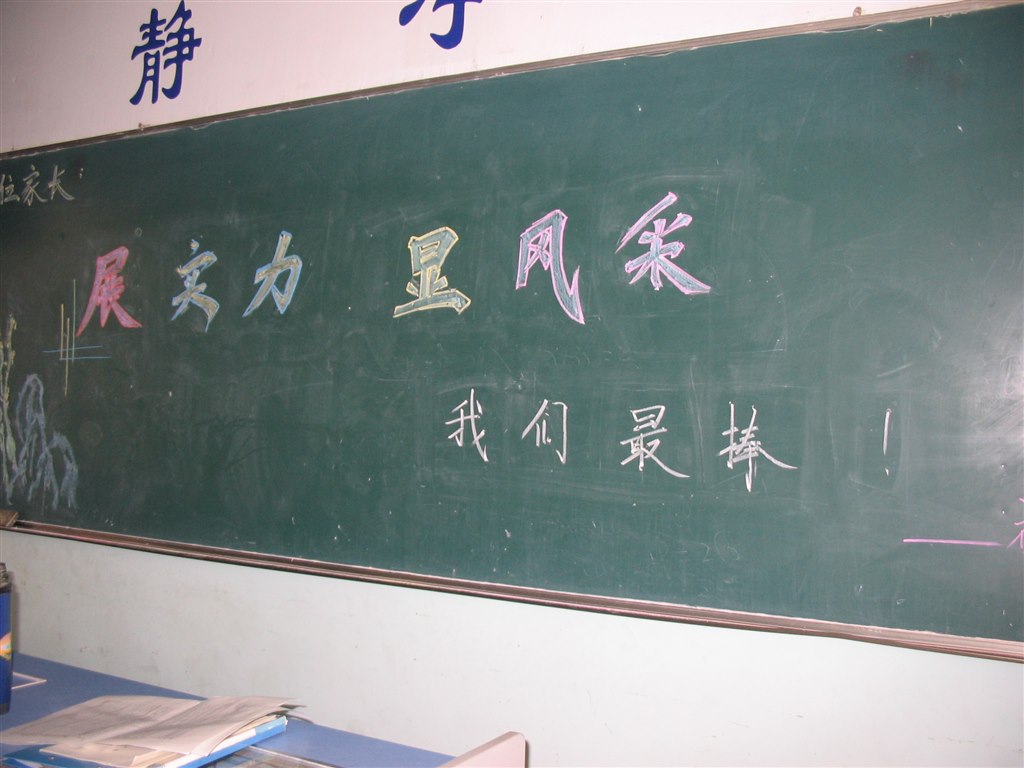 静
位家长：
展实力 显风采
我们最棒！